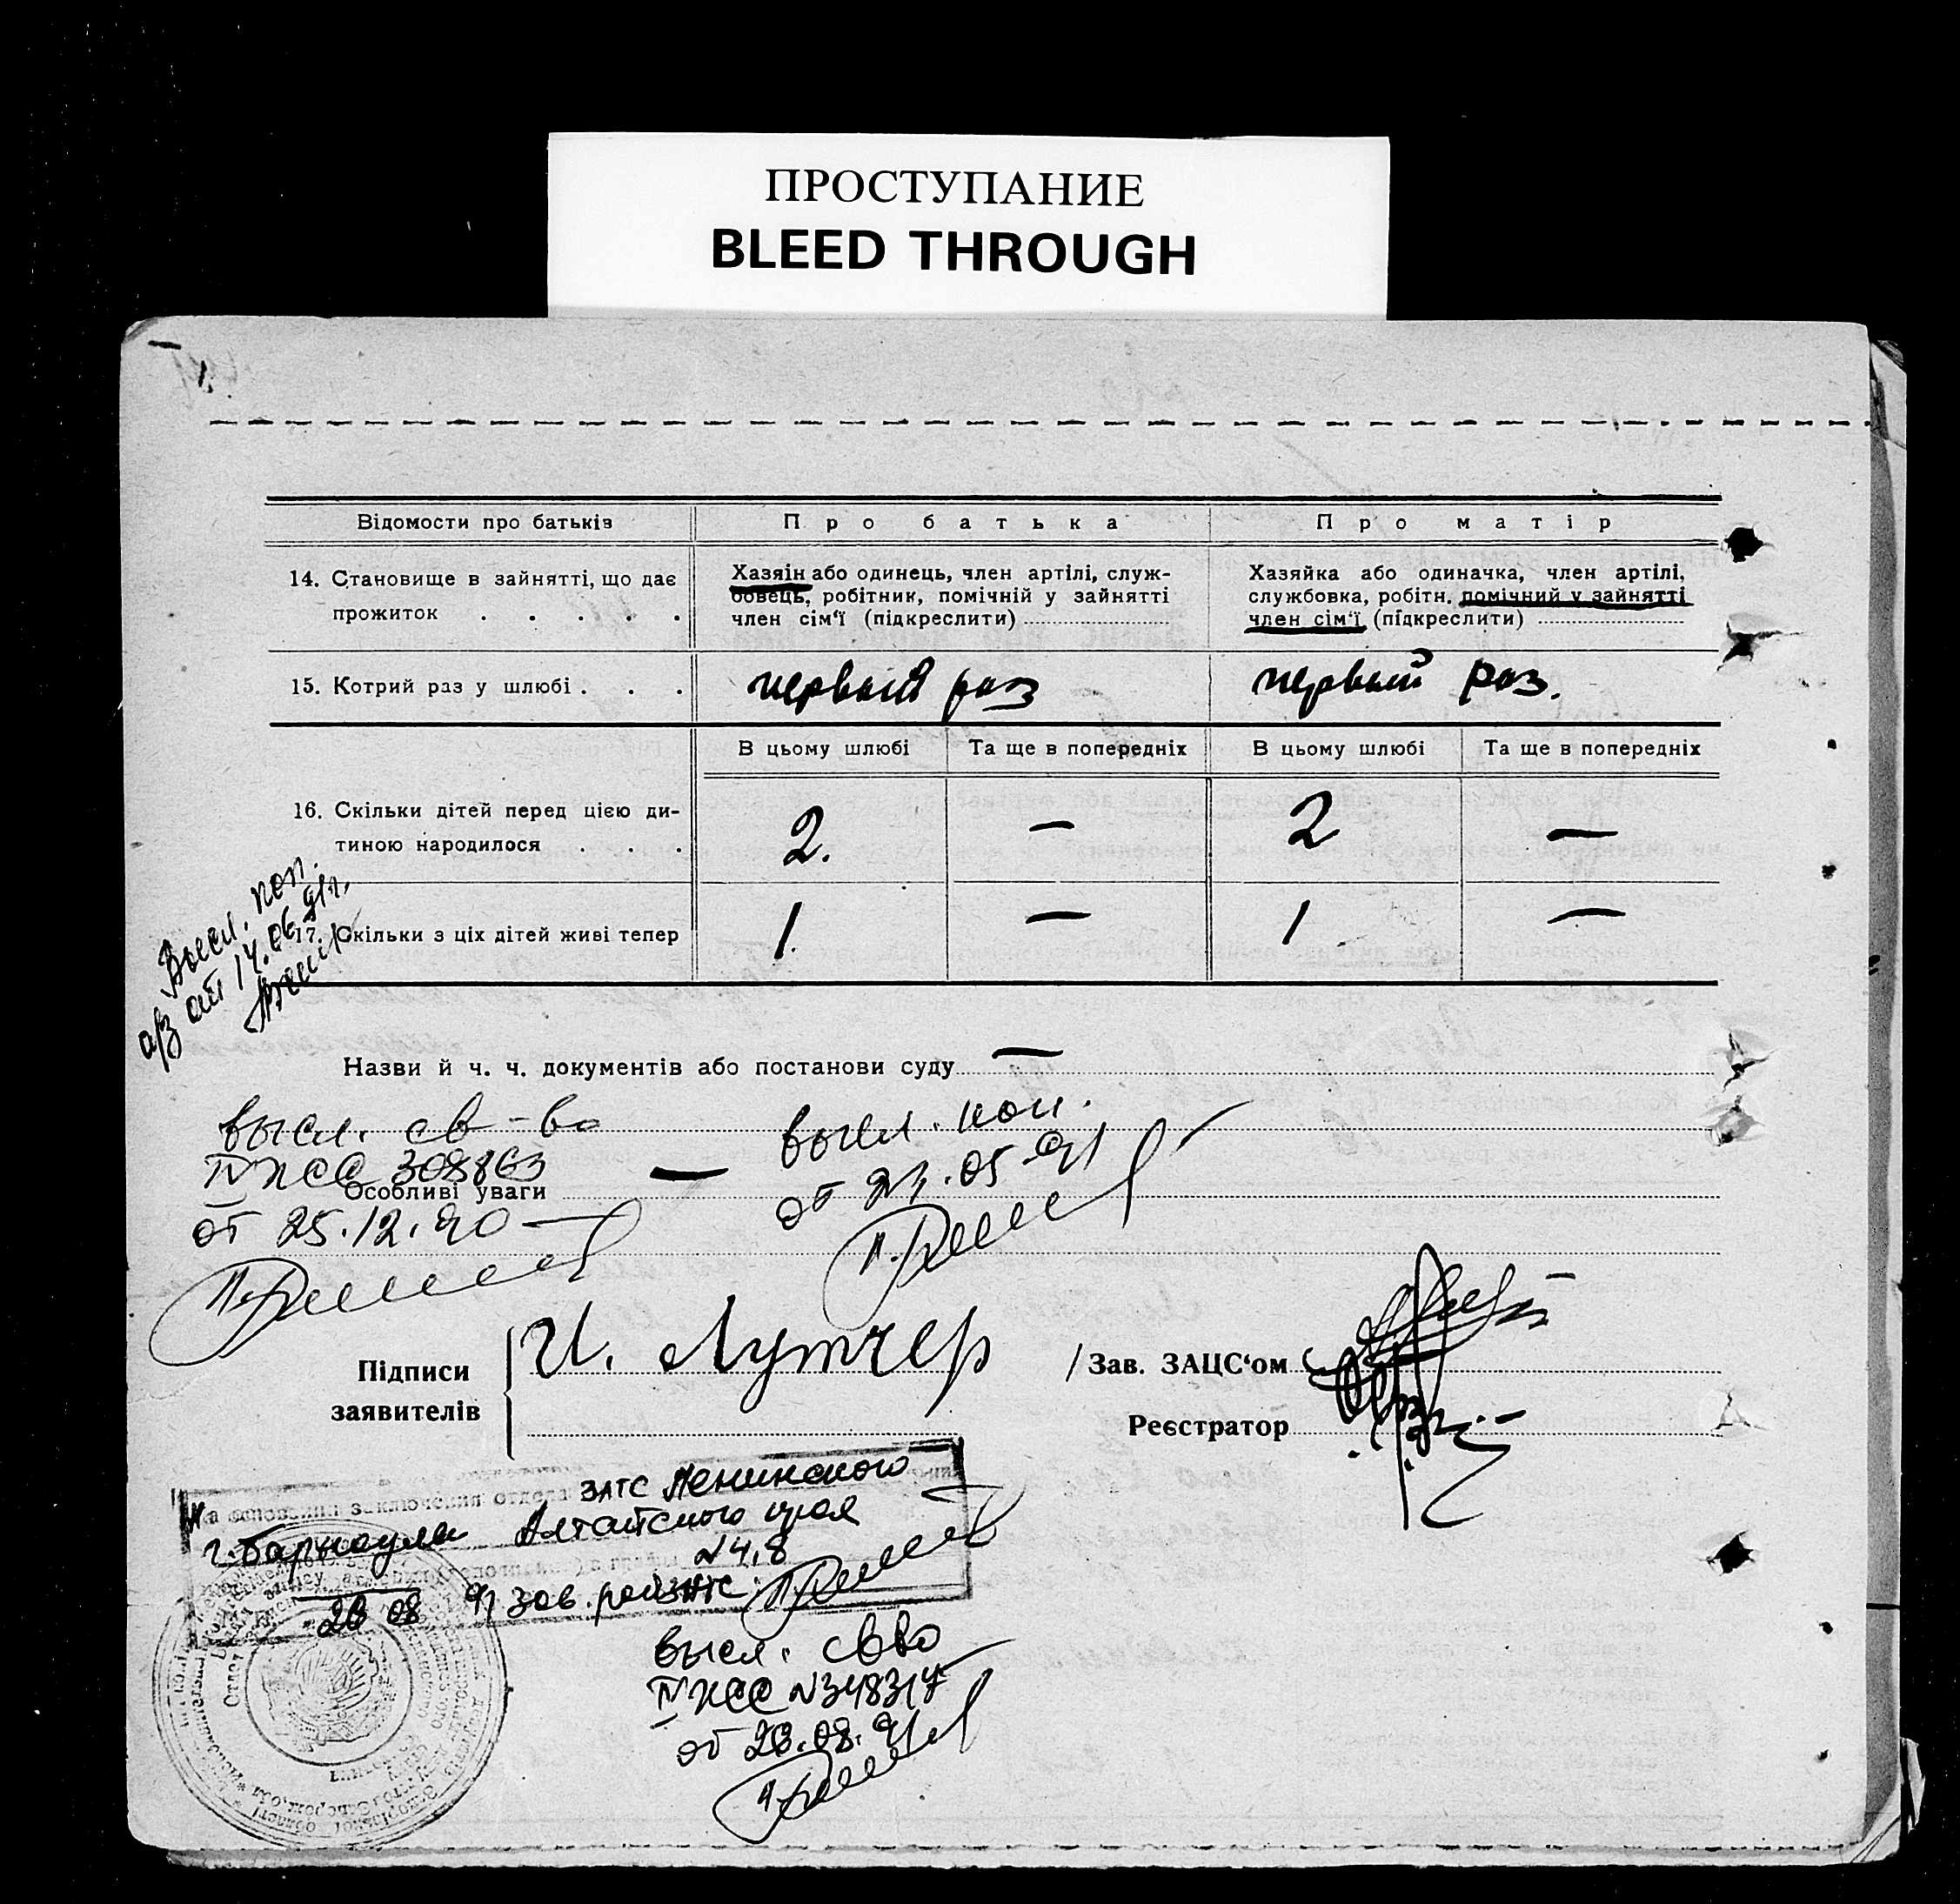 ПРОСТУПАНИЕ
BLEED THROUGH
Відомости про батьків
Про батька
Про матір
14. Становище в зайнятті, що дає
прожиток . . . . .
Хазяїн або одинець, член артілі, служ-
бовець, робітник, помічній у зайнятті
член сім'ї (підкреслити)
Хазяйка або одиначка, член артілі,
службовка, робітн. помічний у зайнятті
член сім'ї (підкреслити)
15. Котрий раз у шлюбі . . .
первый раз
первый раз.
В цьому шлюбі
Та ще в попередніх
В цьому шлюбі
Та ще в попередніх
16. Скільки дітей перед цією ди-
тиною народилося . . .
2.
—
2
—
17. Скільки з ціх дітей живі тепер
1.
—
1
—
Высл. поп.
а/з от 14.06.91г.
Назви й ч. ч. документів або постанови суду —
высл. св-во
IV ЖС 308863
от 25.12.90
высл. коп.
от 21.05.91
Особливі уваги —
Підписи
заявителів
И. Лутчер
/ Зав. ЗАЦС'ом
Реєстратор
На основании заключения отдела ЗАГС Ленинского
г. Барнаула Алтайского края
№ 4,8
26 08 91 зав. райЗАГС
высл. св-во
IV ЖС № 348317
от 26.08.91